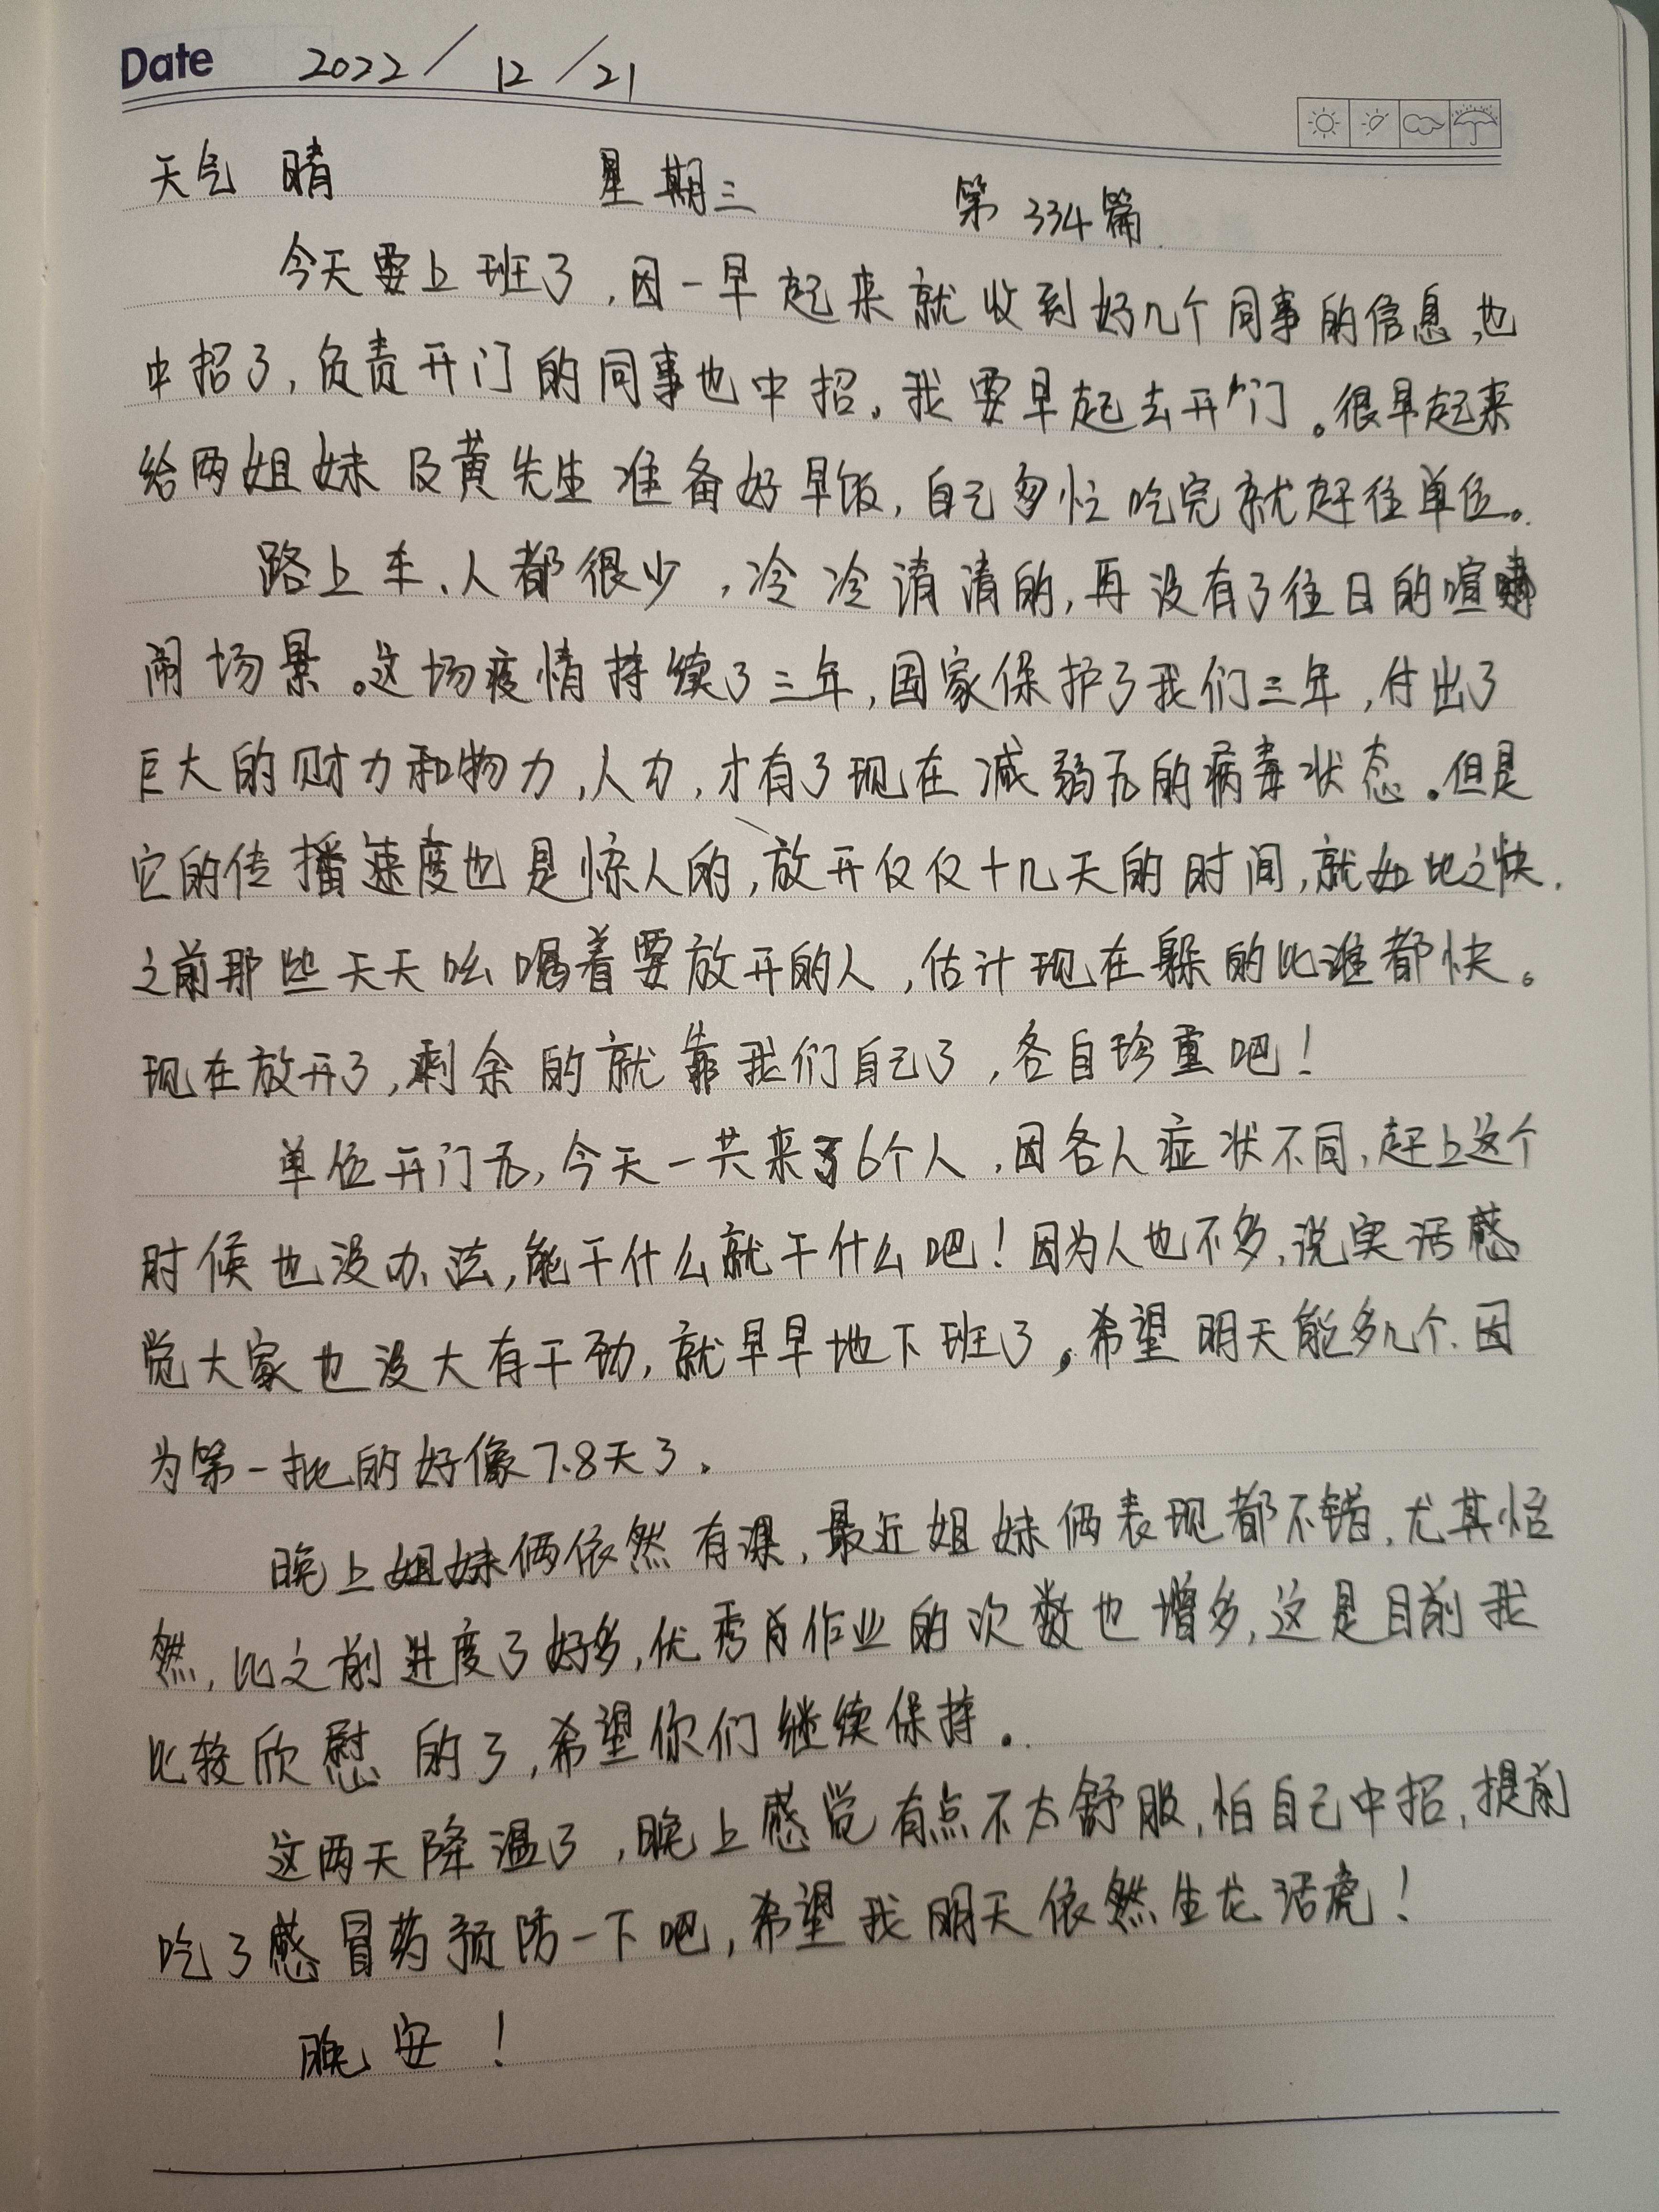 Date 2022/12/21
天气 晴 星期三 第334篇
今天要上班了,因一早起来就收到好几个同事的信息,也
中招了,负责开门的同事也中招。我要早起去开门。很早起来
给两姐妹及黄先生准备好早饭,自己匆忙吃完就赶往单位。
路上车、人都很少,冷冷清清的,再没有了往日的喧
闹场景。这场疫情持续了三年,国家保护了我们三年,付出了
巨大的财力和物力,人力,才有了现在减弱后的病毒状态。但是
它的传播速度也是惊人的,放开仅仅十几天的时间,就如此之快.
之前那些天天吆喝着要放开的人,估计现在躲的比谁都快。
现在放开了,剩余的就靠我们自己了,各自珍重吧!
单位开门后,今天一共来了6个人,因各人症状不同,赶上这个
时候也没办法,能干什么就干什么吧!因为人也不多,说实话感
觉大家也没大有干劲,就早早地下班了。希望明天能多几个.因
为第一批的好像7.8天了.
晚上姐妹俩依然有课,最近姐妹俩表现都不错,尤其怡
然,比之前进度了好多,优秀作业的次数也增多,这是目前我
比较欣慰的了,希望你们继续保持。
这两天降温了,晚上感觉有点不太舒服,怕自己中招,提前
吃了感冒药预防一下吧,希望我明天依然生龙活虎!
晚安!